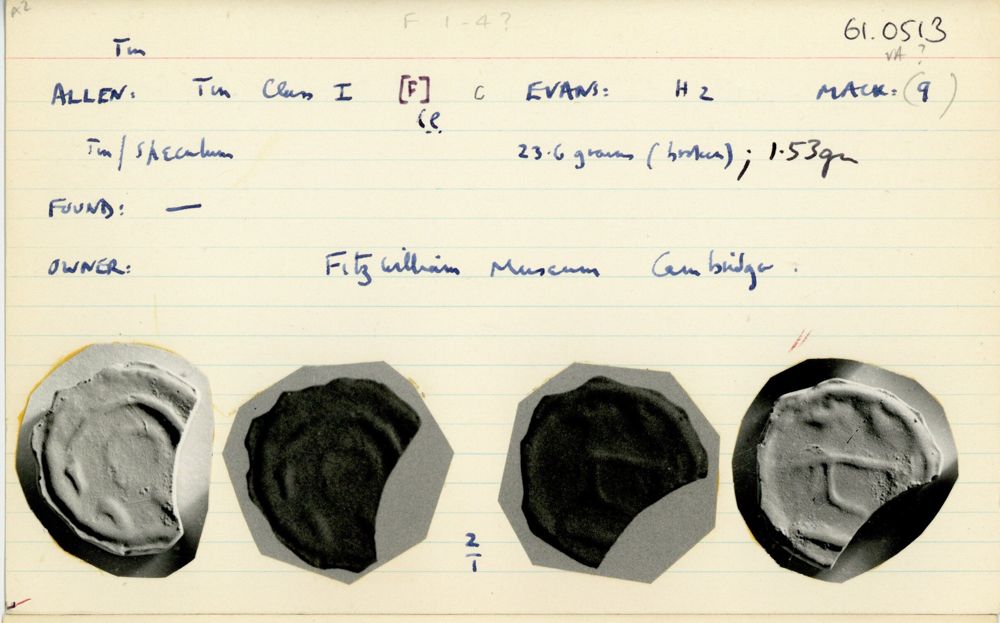 A2
F 1-4?
61.0513
Tin
VA ?
ALLEN: Tin Class I [F] C EVANS: H 2 MACK: (9)
Ce
Tin/Speculum 23.6 grains (broken); 1.53gm
FOUND: —
OWNER: Fitzwilliam Museum Cambridge.
2/1